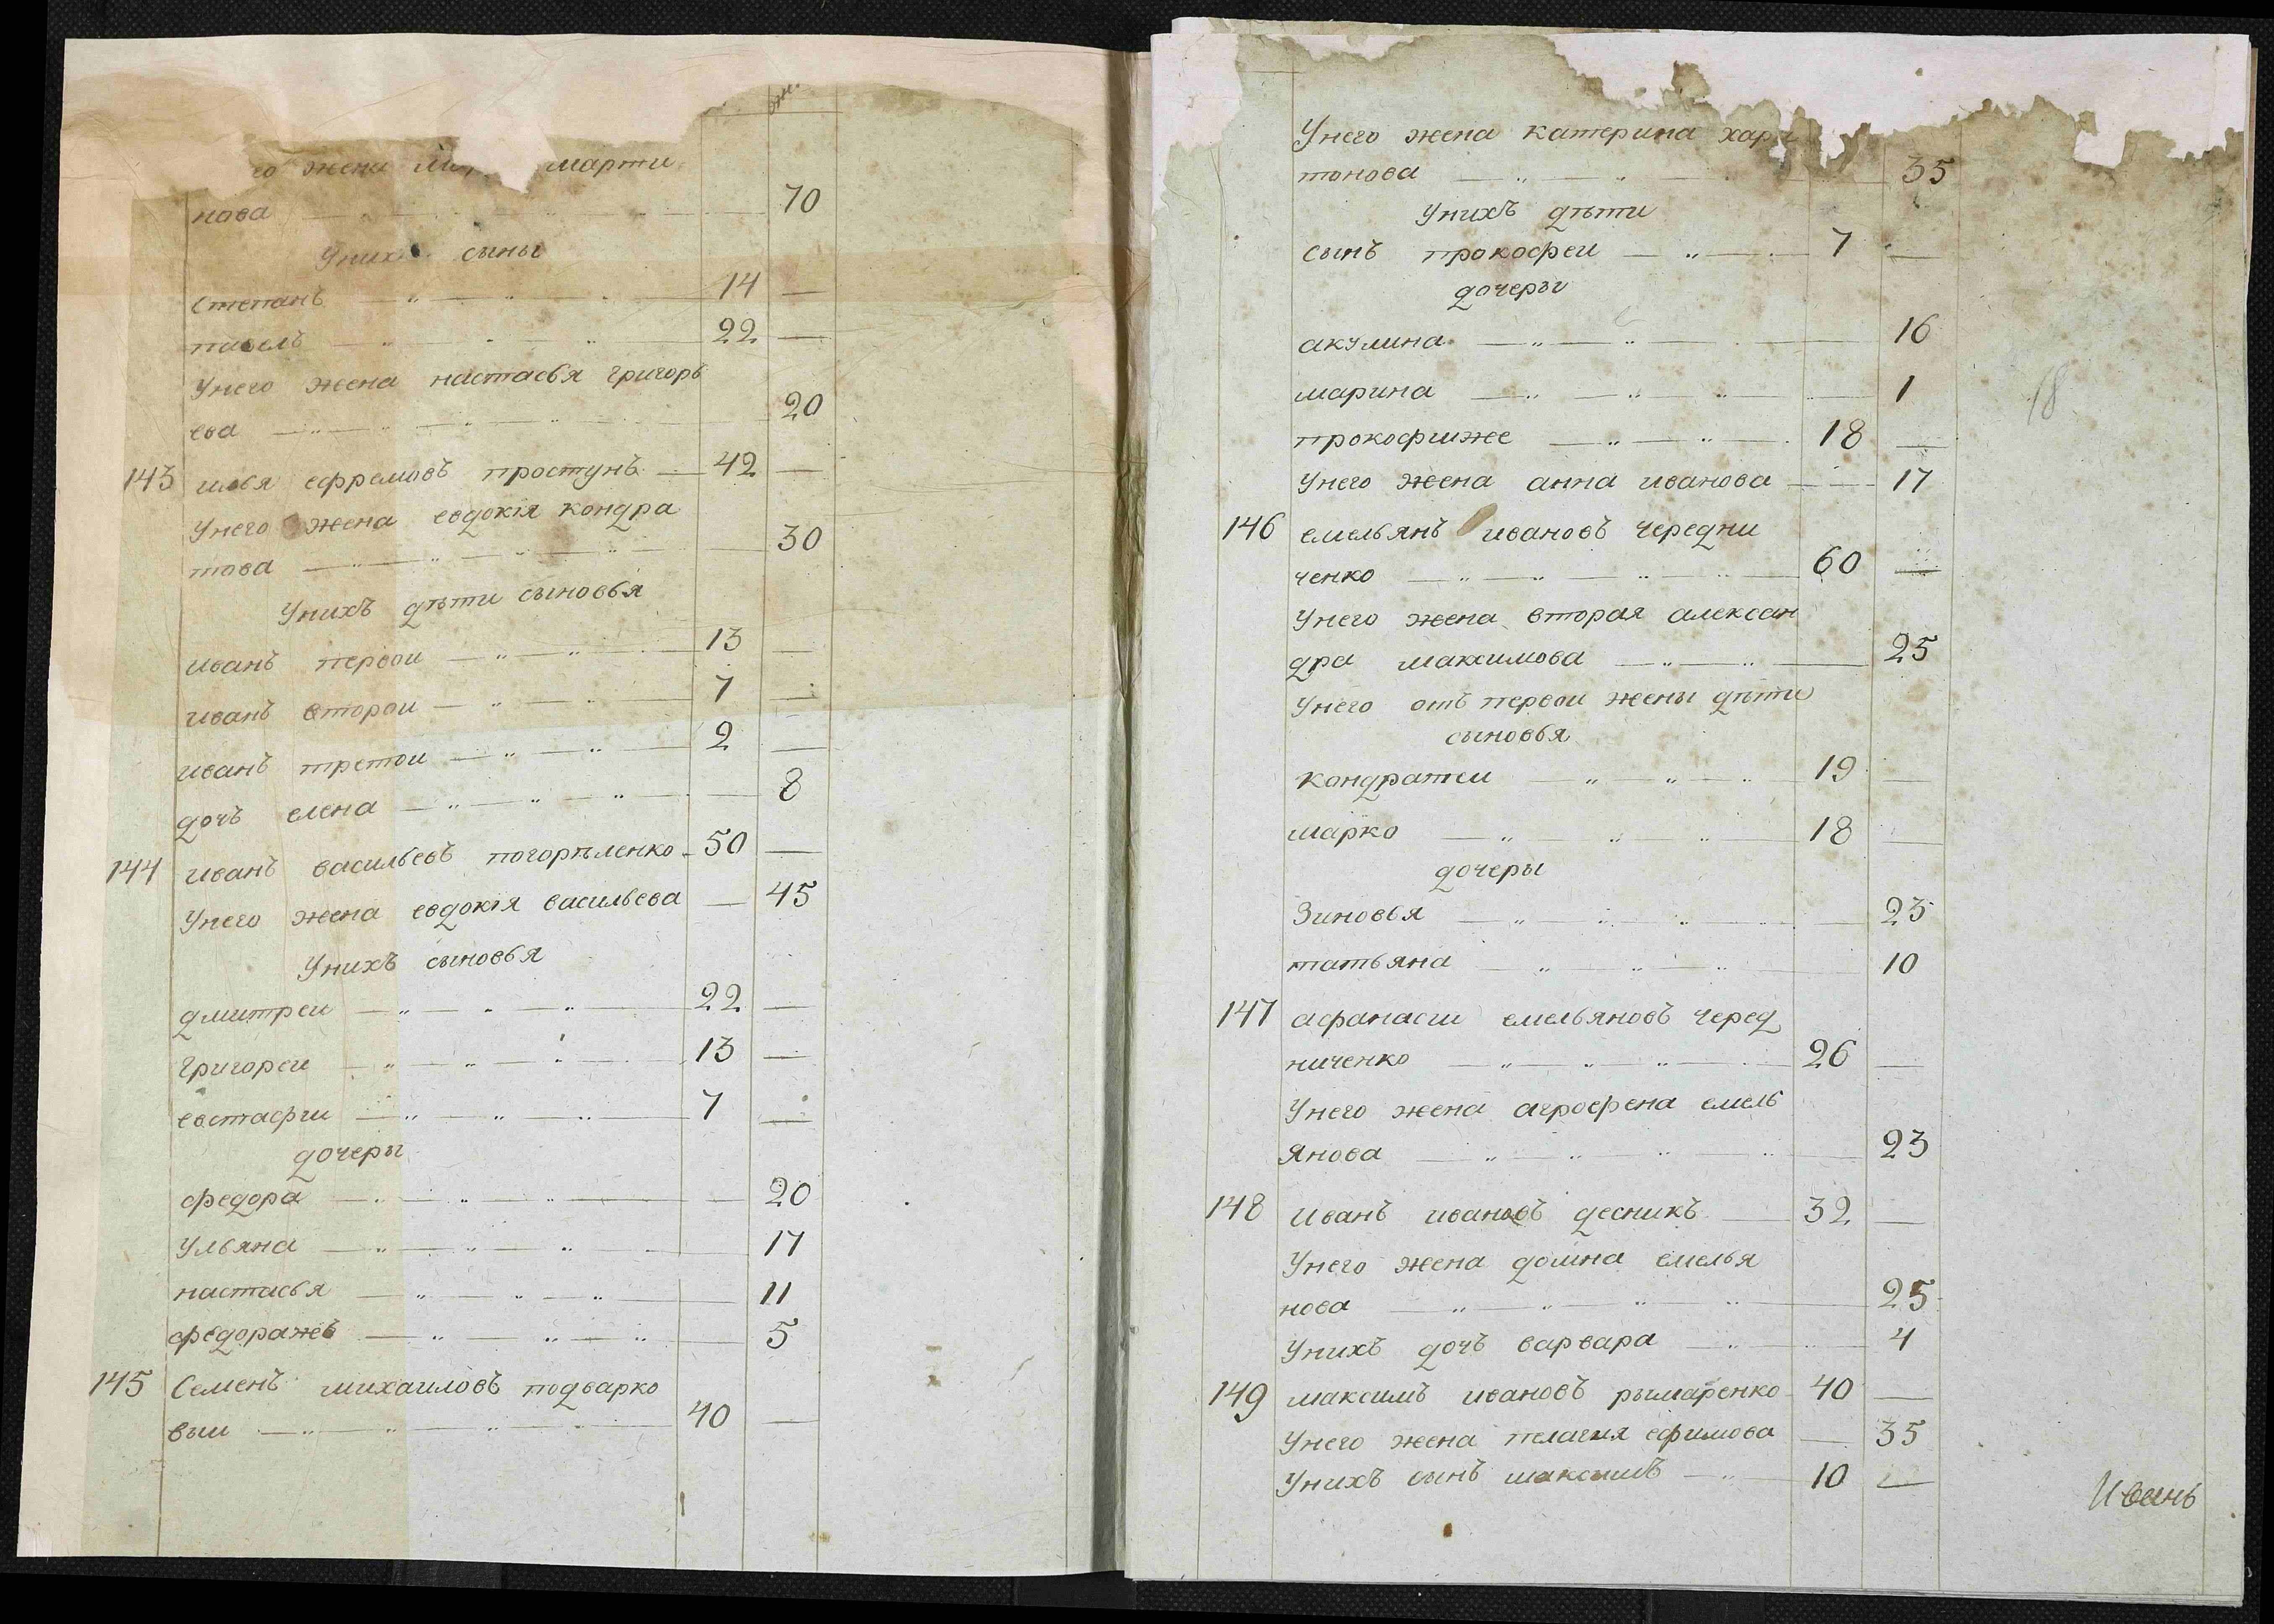 го жена марти
нова 70
Унихъ сыны
Степанъ 14 —
павелъ 22 —
Унего жена настасья григорь
ева 20
143 илья ефремовъ простунъ — 42 —
Унего жена евдокія кондра
това 30
Унихъ дѣти сыновья
иванъ первои 13 —
иванъ второи 7 —
иванъ третои 2 —
дочь елена 8
144 иванъ васильевъ погорѣленко 50 —
Унего жена евдокія васильева — 45
Унихъ сыновья
дмитреи 22 —
григореи 13 —
евстафіи 7 —
дочеры
федора 20
Ульяна 17
настасья 11
федоражъ 5
145 Семенъ михаиловъ подварко
выи 40 —
Унего жена катерина хари
тонова 35
Унихъ дѣти
сынъ прокофеи 7 —
дочеры
акулина 16
марина 1
прокофииже 18 —
Унего жена анна иванова 17
146 емельянъ ивановъ чередни
ченко 60 —
Унего жена вторая алексан
дра максимова 25
Унего отъ первои жены дѣти
сыновья
кондратеи 19 —
марко 18 —
дочеры
Зиновья 23
татьяна 10
147 афанасіи емельяновъ черед
ниченко 26 —
Унего жена агрофена емель
янова 23
148 иванъ ивановъ десникъ 32 —
Унего жена домна емелья
нова 25
Унихъ дочь варвара 4
149 максимъ ивановъ рымаренко 40 —
Унего жена пелагия ефимова 35
Унихъ сынъ максимъ 10 —
18